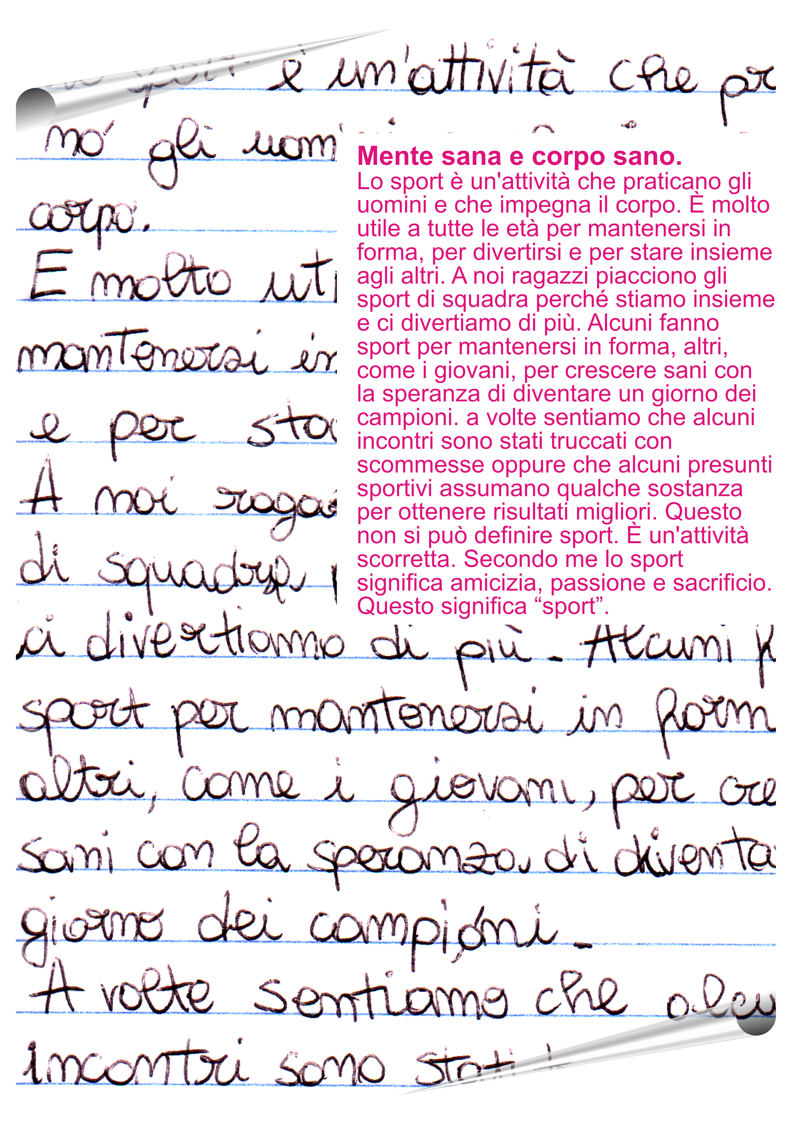 sport è un'attività che pr
no' gli uom
corpo.
E molto uti
mantenersi in
e per sta
A noi ragaz
di squadra p
ci divertiamo di più. Alcuni f
sport per mantenersi in form
altri, come i giovani, per cre
sani con la speranza di diventa
giorno dei campioni.
A volte sentiamo che alcu
incontri sono stati
Mente sana e corpo sano.
Lo sport è un'attività che praticano gli
uomini e che impegna il corpo. È molto
utile a tutte le età per mantenersi in
forma, per divertirsi e per stare insieme
agli altri. A noi ragazzi piacciono gli
sport di squadra perché stiamo insieme
e ci divertiamo di più. Alcuni fanno
sport per mantenersi in forma, altri,
come i giovani, per crescere sani con
la speranza di diventare un giorno dei
campioni. a volte sentiamo che alcuni
incontri sono stati truccati con
scommesse oppure che alcuni presunti
sportivi assumano qualche sostanza
per ottenere risultati migliori. Questo
non si può definire sport. È un'attività
scorretta. Secondo me lo sport
significa amicizia, passione e sacrificio.
Questo significa “sport”.